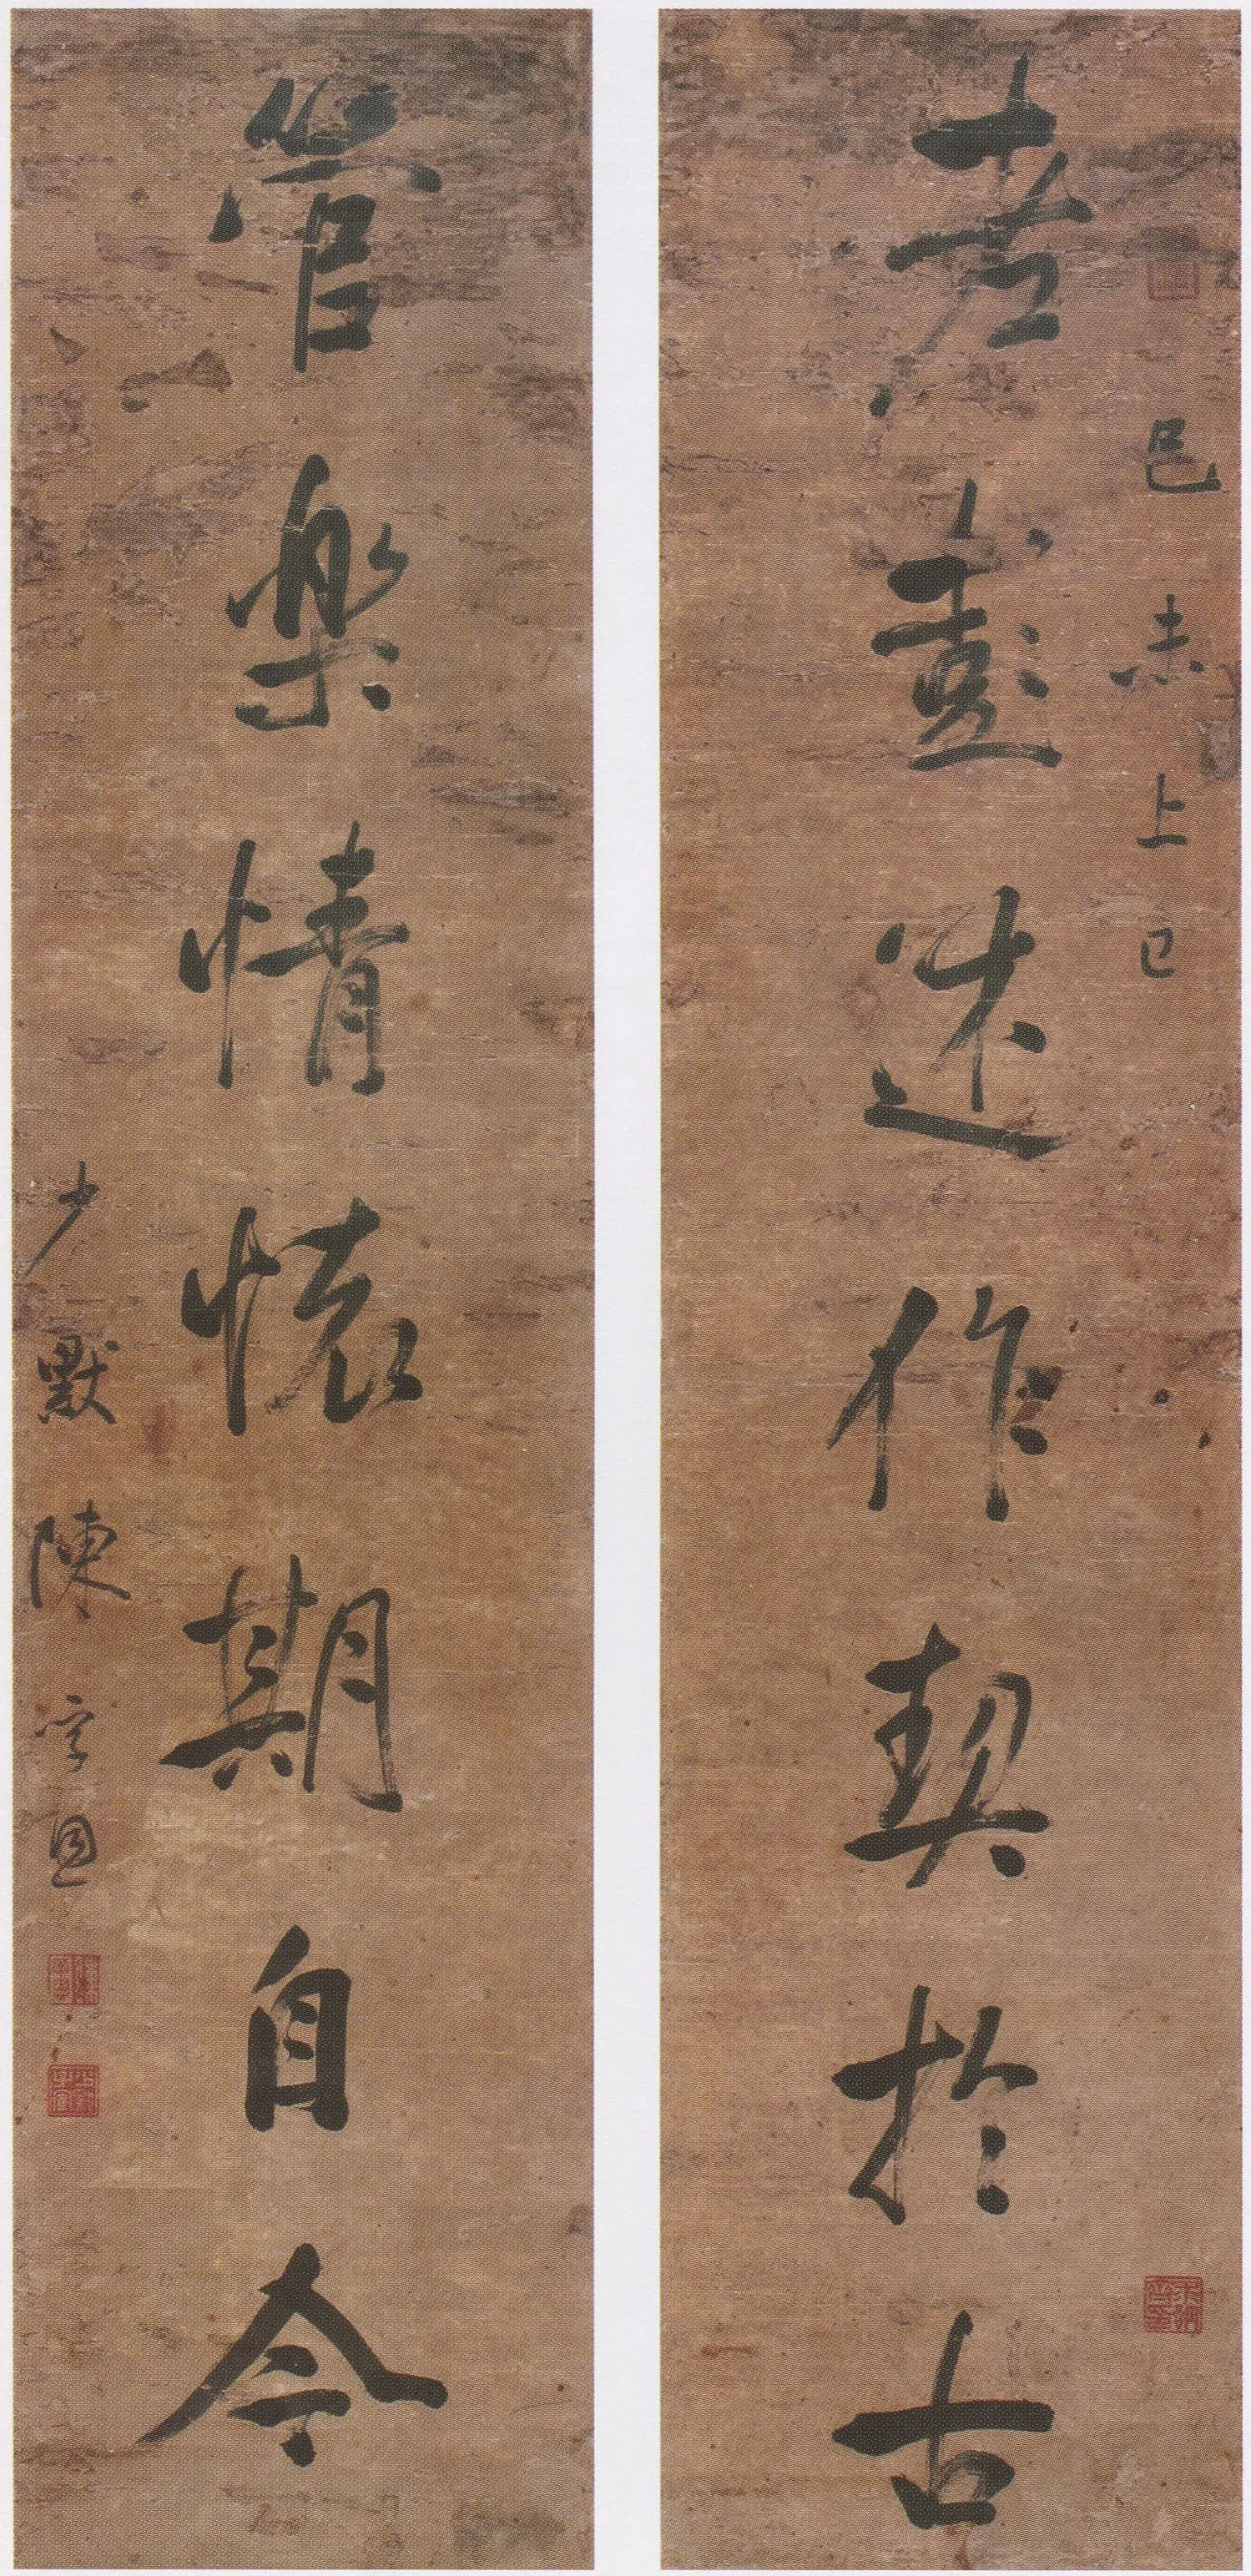 己未上巳
老彭述作契於古
管樂情懷期自今
少默陳孚恩